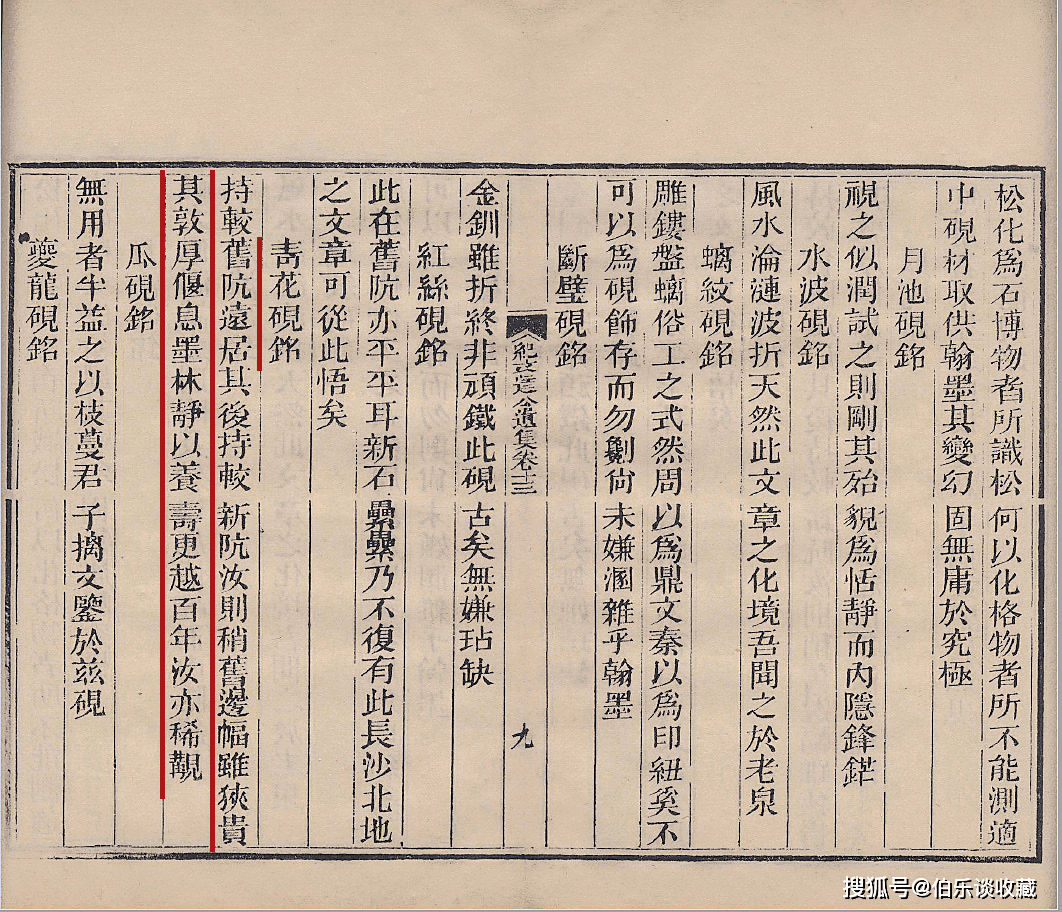 松化爲石博物者所識松何以化格物者所不能測適
中硯材取供翰墨其變幻固無庸於究極
月池硯銘
視之似潤試之則剛其殆貌爲恬静而內隱鋒鋩
水波硯銘
風水淪漣波折天然此文章之化境吾聞之於老泉
螭紋硯銘
雕鏤盤螭俗工之式然周以爲鼎文秦以爲印紐奚不
可以爲硯飾存而勿劖尙未嫌溷雜乎翰墨
斷璧硯銘
金釧雖折終非頑鐵此硯古矣無嫌玷缺
紀文達公遺集卷十三
九
紅絲硯銘
此在舊阬亦平平耳新石纍纍乃不復有此長沙北地
之文章可從此悟矣
靑花硯銘
持較舊阬遠居其後持較新阬汝則稍舊邊幅雖狹貴
其敦厚偃息墨林靜以養壽更越百年汝亦稀覯
瓜硯銘
無用者半益之以枝蔓君子摛文鑒於兹硯
夔龍硯銘
搜狐号@伯乐谈收藏